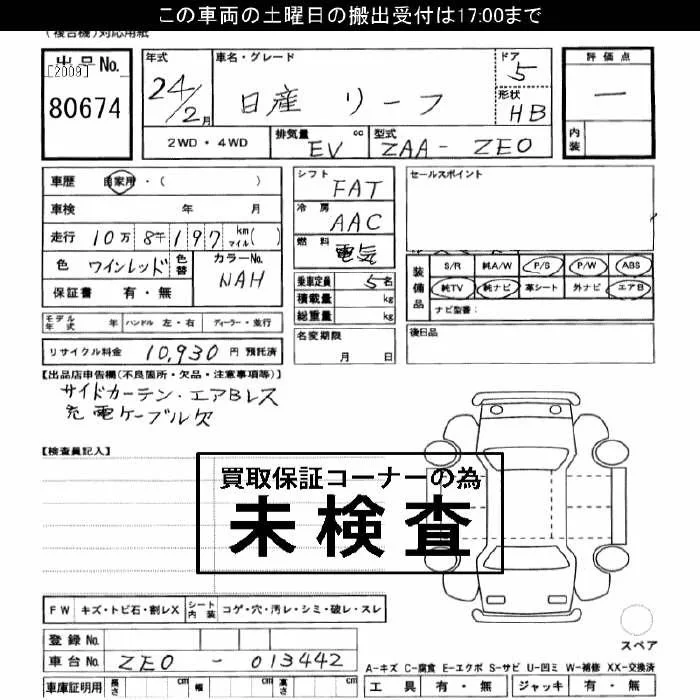 この車両の土曜日の搬出受付は17:00まで
(複合機)対応用紙
出品No.
[2009]
80674
年式
24/2月
車名・グレード
日産 リーフ
ドア
5
形状
HB
評価点
―
内装
2WD・4WD
排気量 cc
EV
型式
ZAA-ZE0
車歴 自家用・( )
車検 年 月
走行 10万8千197 km マイル( )
色 ワインレッド 色替
カラーNo.
NAH
保証書 有・無
シフト
FAT
冷房
AAC
燃料
電気
乗車定員 5名
積載量 kg
総重量 kg
セールスポイント
装備品
S/R 純A/W P/S P/W ABS
純TV 純ナビ 革シート 外ナビ エアB
ナビ型番:
モデル年式 年 ハンドル 左・右 ディーラー・並行
名変期限
月 日
後日品
リサイクル料金 10,930 円 預託済
【出品店申告欄(不良箇所・欠品・注意事項等)】
サイドカーテン・エアBレス
充電ケーブル欠
【検査員記入】
買取保証コーナーの為
未検査
FW キズ・トビ石・割レX シート内装 コゲ・穴・汚レ・シミ・破レ・スレ
登録No.
車台No. ZE0-013442
車庫証明用 長さ cm 幅 cm 高さ cm
スペア
A-キズ C-腐食 E-エクボ S-サビ U-凹ミ W-補修 XX-交換済
工具 有・無 ジャッキ 有・無